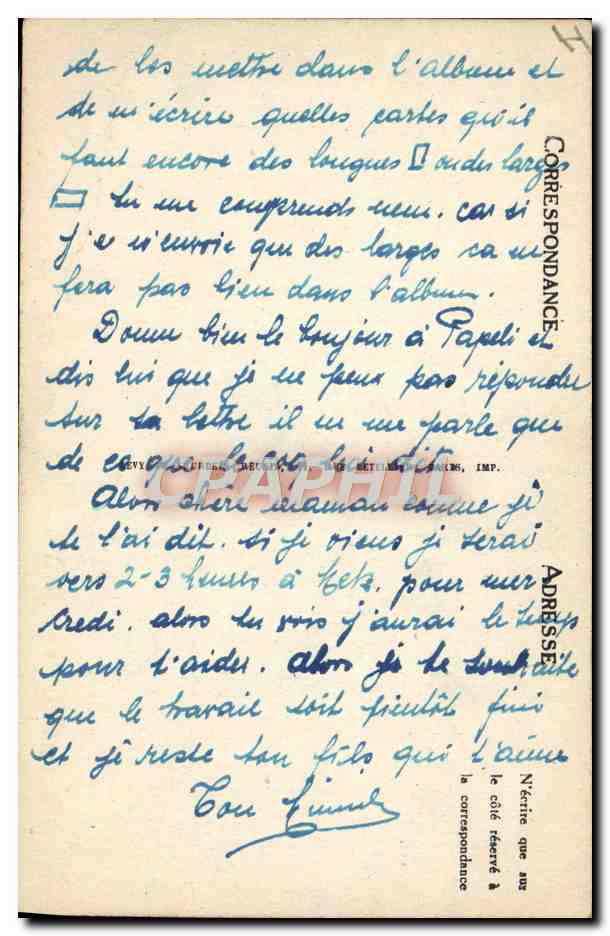 de les mettre dans l'album et
de m'écrire quelles cartes qu'il
faut encore des longues ou des larges
tu me comprends mem. car si
j'e m'envoie que des larges ca n
fera pas bien dans l'album.
Donne bien le bonjour à Papeli et
dis lui que je ne peux pas répondre
sur sa lettre il ne me parle que
de ce que le lui dit
Alors chère maman comme je
te l'ai dit. si je viens je serai
vers 2-3 heures à Metz. pour mer
credi. alors tu vois j'aurai le temps
pour t'aider. Alors je te souhaite
que le travail soit bientôt fini
et je reste ton fils qui t'aime
Ton
CORRESPONDANCE
ADRESSE
N'écrire que sur
le côté réservé à
la correspondance
LEVY PARIS, IMP.
CPARHIL